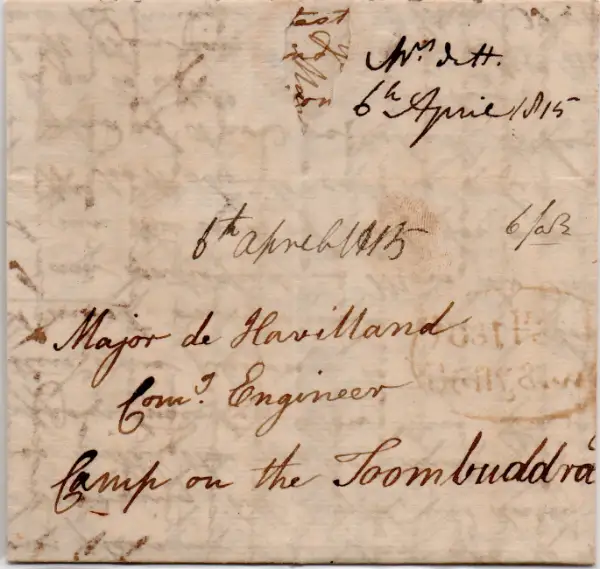 Mrs. de H.
6th April 1815
6th April 1815
Major de Havilland
Comg. Engineer
Camp on the Toombuddra